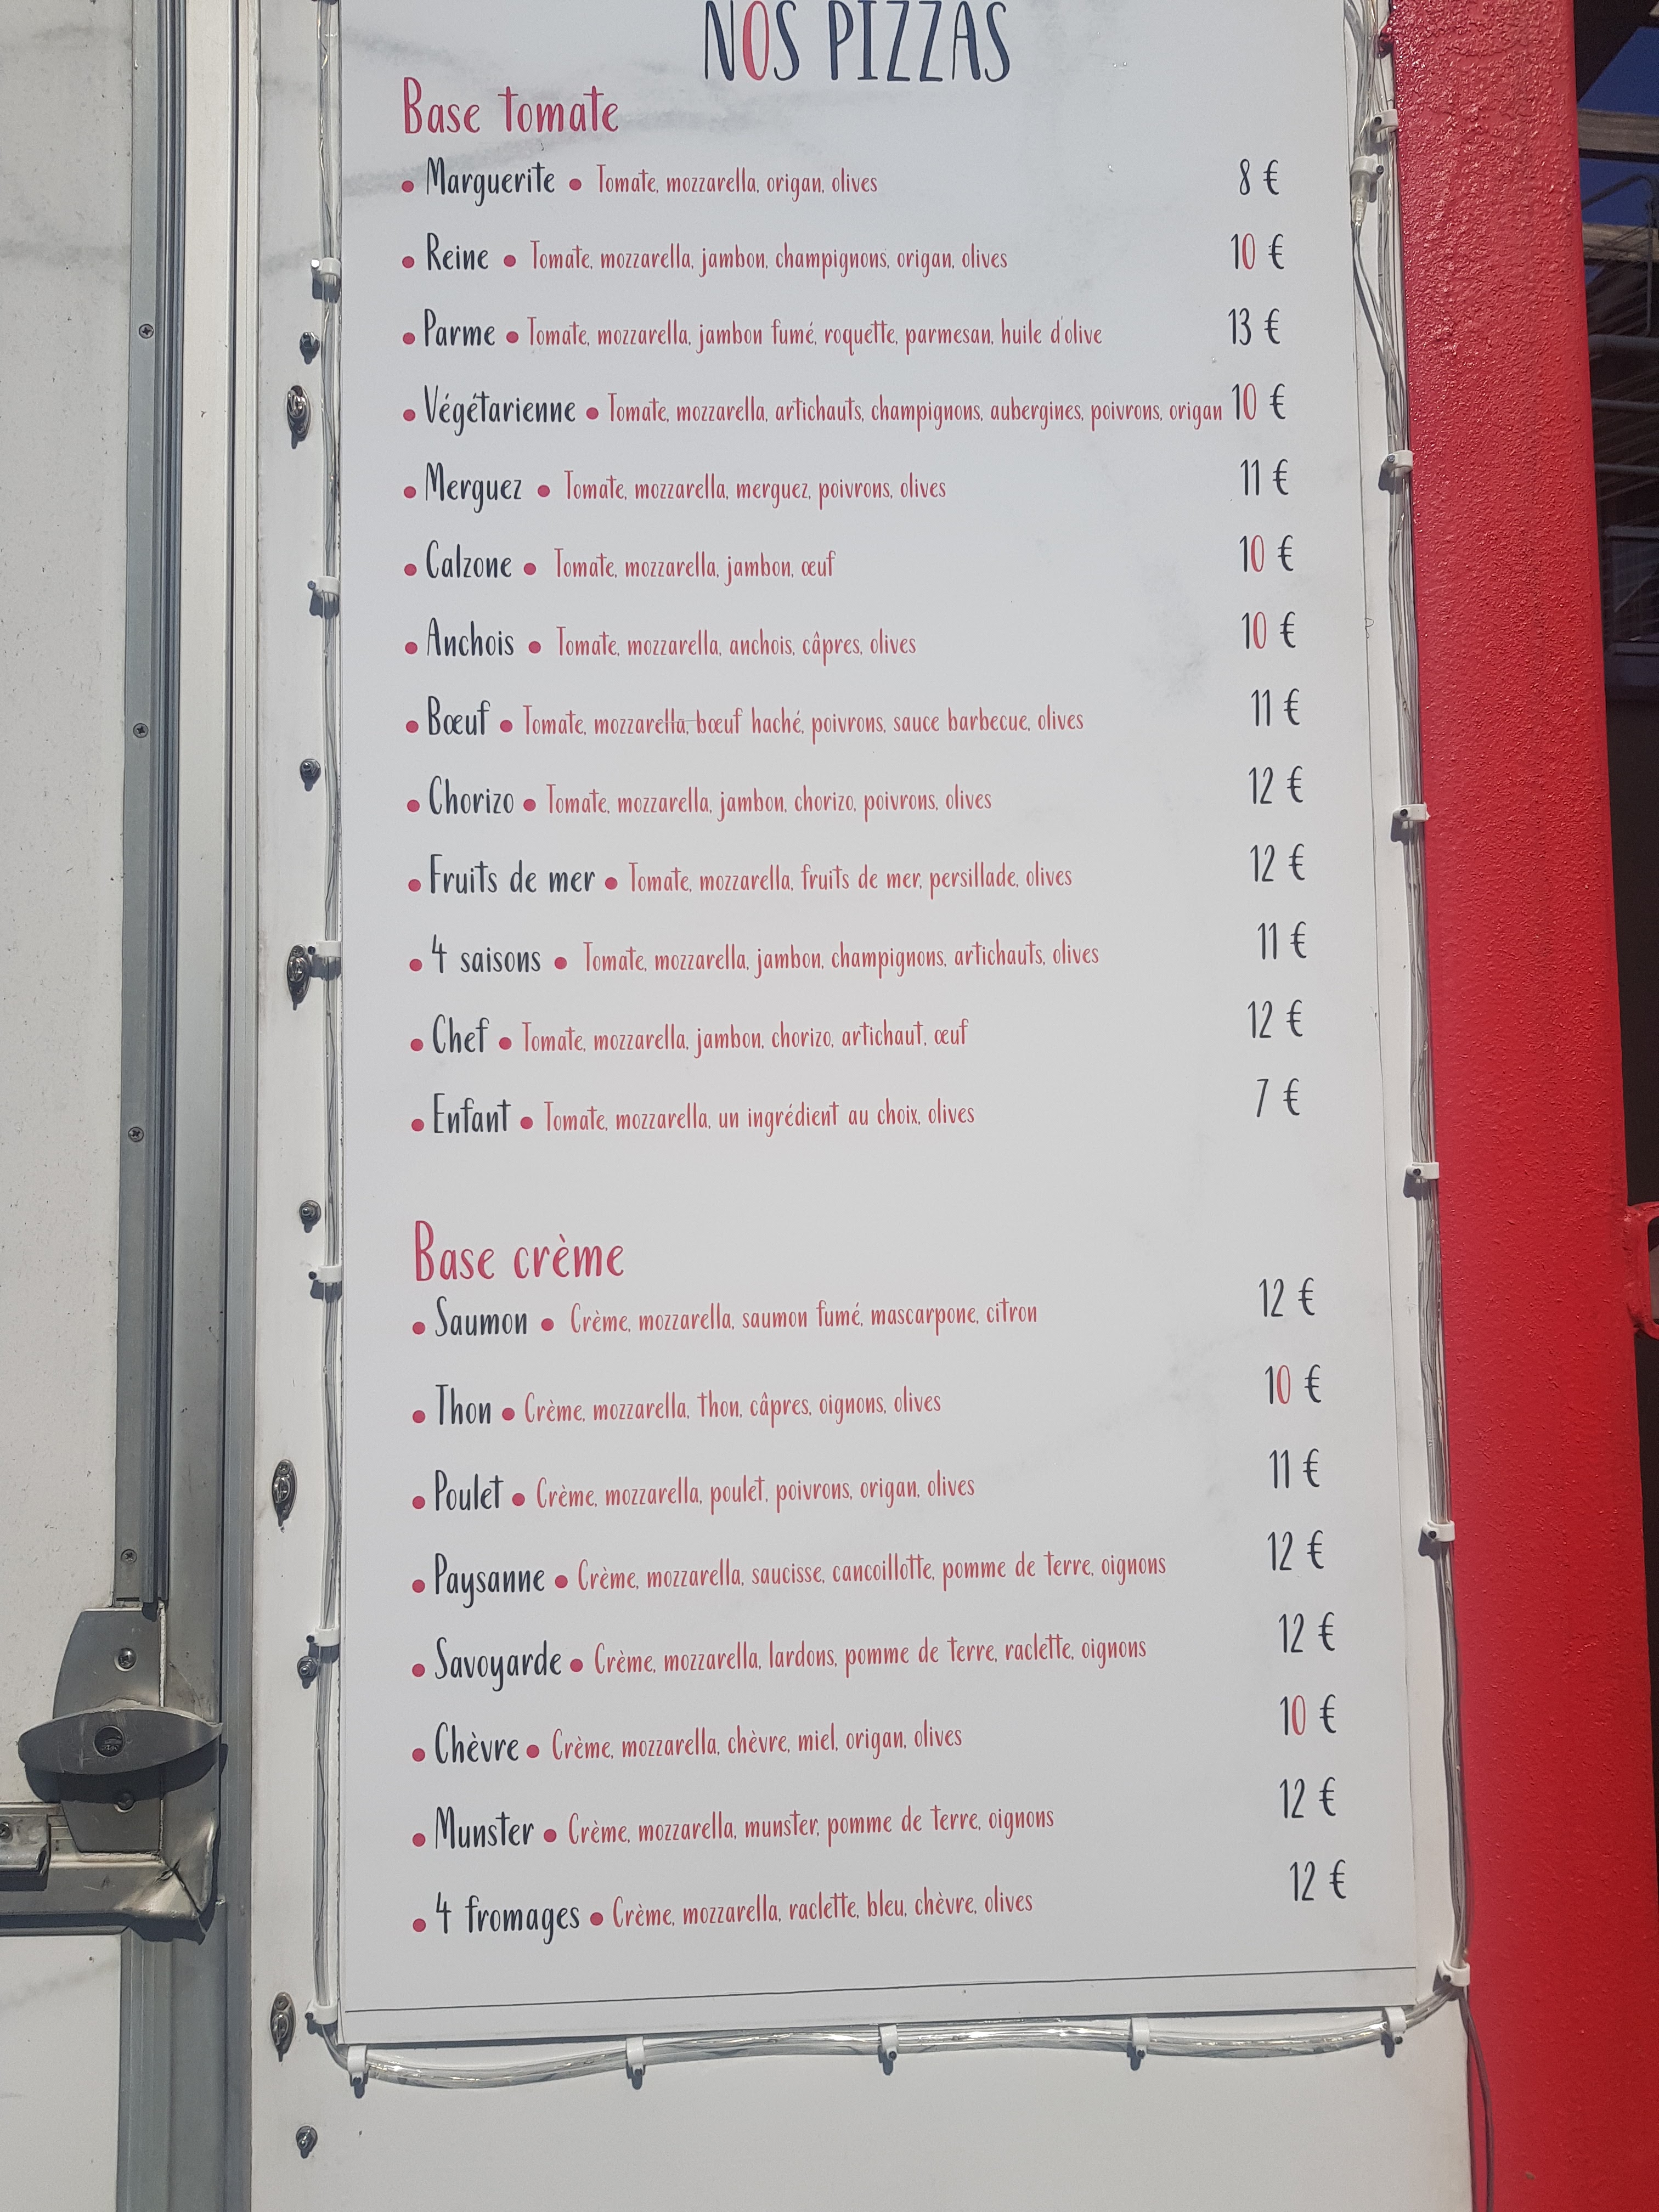 NOS PIZZAS
Base tomate
• Marguerite • Tomate, mozzarella, origan, olives 8 €
• Reine • Tomate, mozzarella, jambon, champignons, origan, olives 10 €
• Parme • Tomate, mozzarella, jambon fumé, roquette, parmesan, huile d'olive 13 €
• Végétarienne • Tomate, mozzarella, artichauts, champignons, aubergines, poivrons, origan 10 €
• Merguez • Tomate, mozzarella, merguez, poivrons, olives 11 €
• Calzone • Tomate, mozzarella, jambon, œuf 10 €
• Anchois • Tomate, mozzarella, anchois, câpres, olives 10 €
• Bœuf • Tomate, mozzarella, bœuf haché, poivrons, sauce barbecue, olives 11 €
• Chorizo • Tomate, mozzarella, jambon, chorizo, poivrons, olives 12 €
• Fruits de mer • Tomate, mozzarella, fruits de mer, persillade, olives 12 €
• 4 saisons • Tomate, mozzarella, jambon, champignons, artichauts, olives 11 €
• Chef • Tomate, mozzarella, jambon, chorizo, artichaut, œuf 12 €
• Enfant • Tomate, mozzarella, un ingrédient au choix, olives 7 €
Base crème
• Saumon • Crème, mozzarella, saumon fumé, mascarpone, citron 12 €
• Thon • Crème, mozzarella, thon, câpres, oignons, olives 10 €
• Poulet • Crème, mozzarella, poulet, poivrons, origan, olives 11 €
• Paysanne • Crème, mozzarella, saucisse, cancoillotte, pomme de terre, oignons 12 €
• Savoyarde • Crème, mozzarella, lardons, pomme de terre, raclette, oignons 12 €
• Chèvre • Crème, mozzarella, chèvre, miel, origan, olives 10 €
• Munster • Crème, mozzarella, munster, pomme de terre, oignons 12 €
• 4 fromages • Crème, mozzarella, raclette, bleu, chèvre, olives 12 €